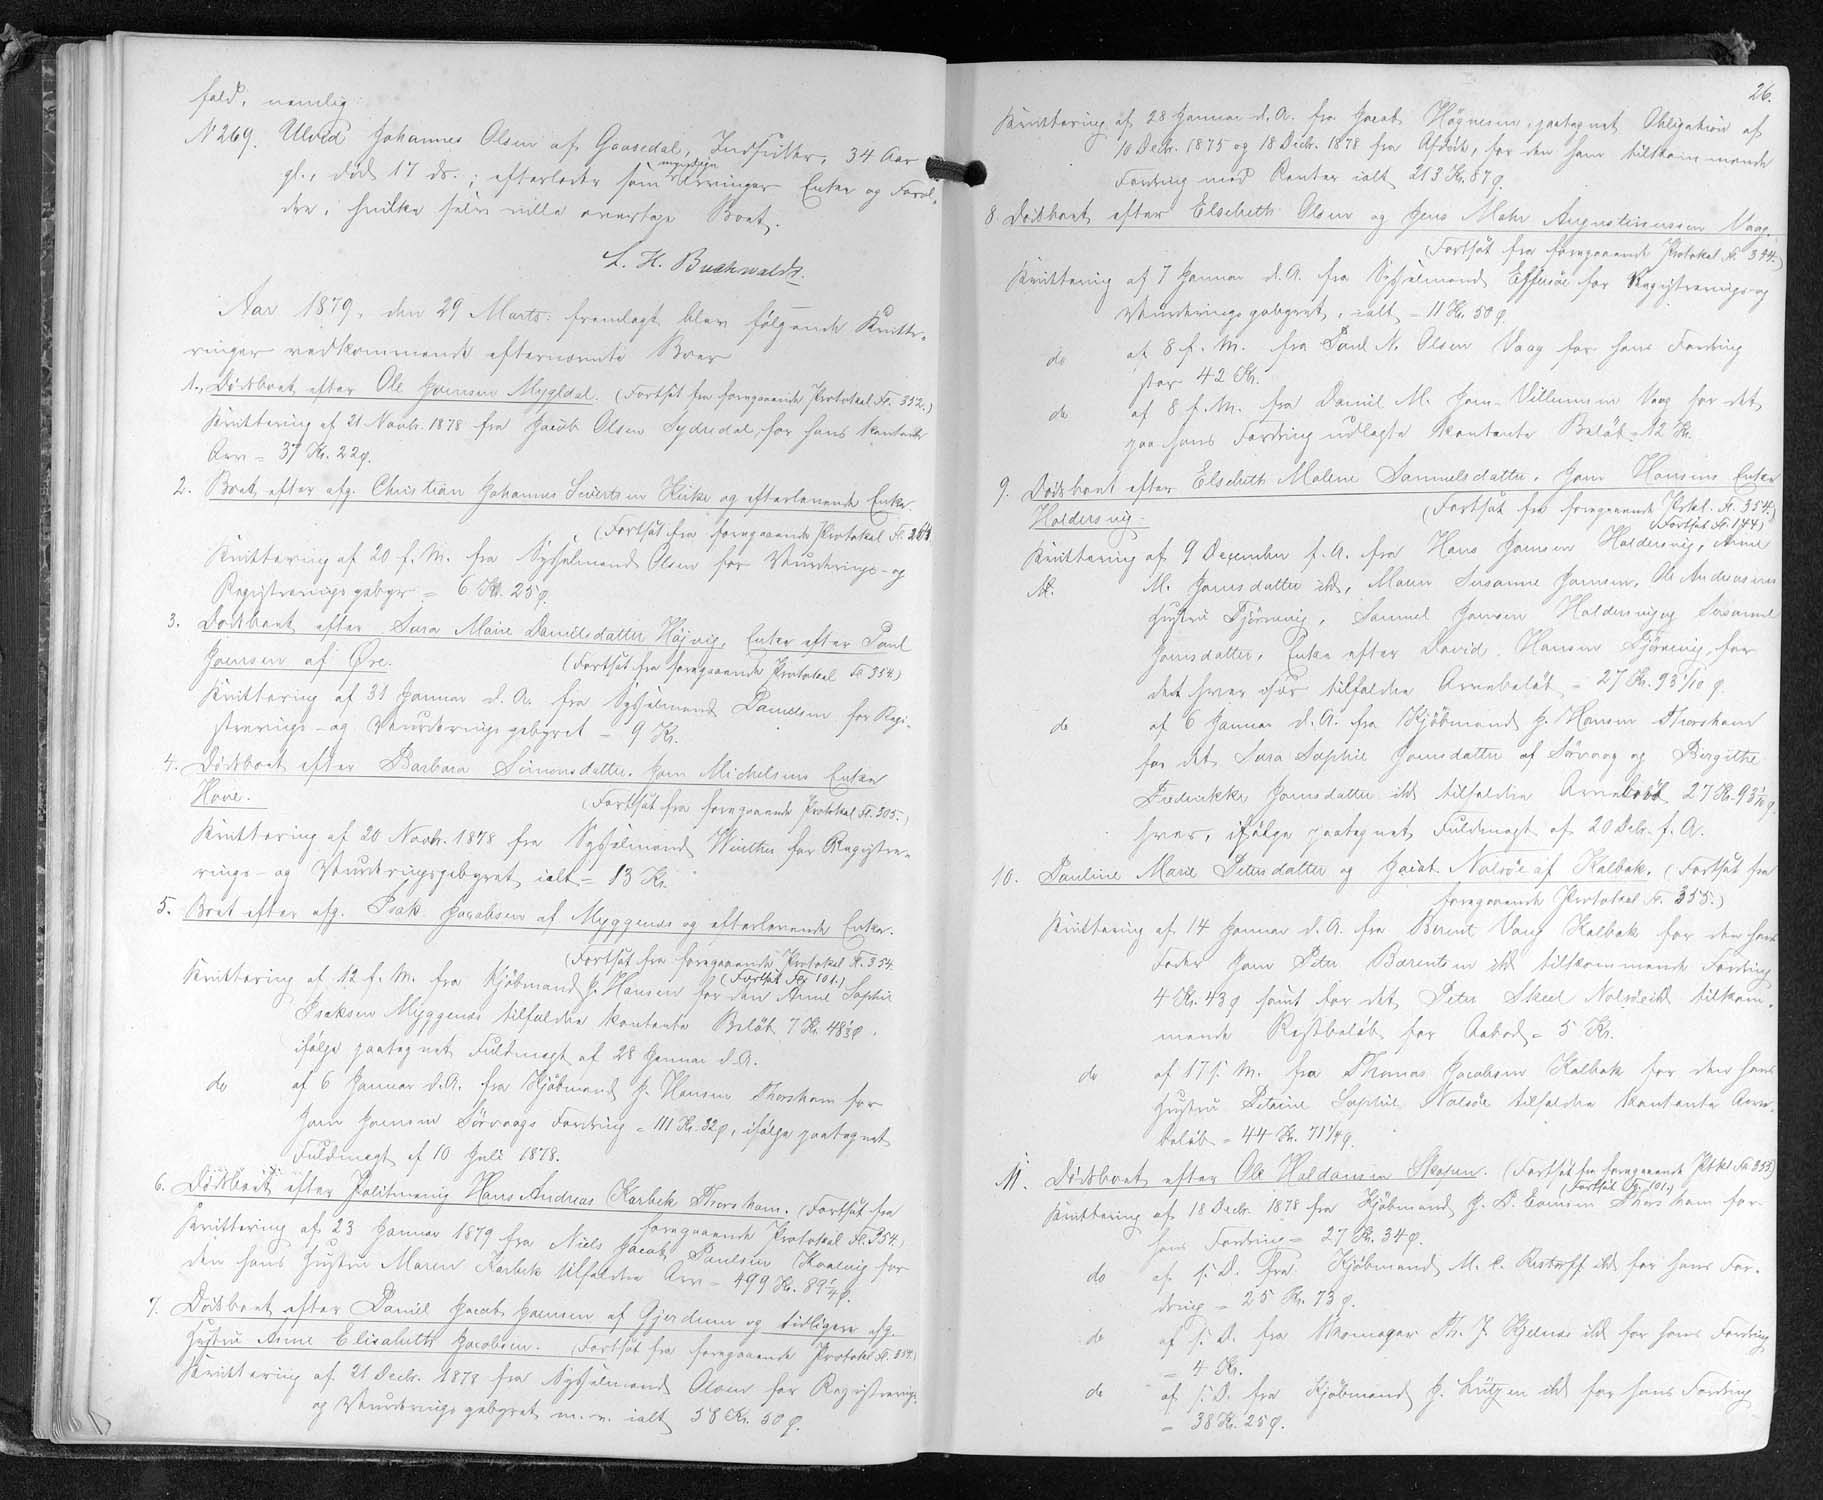 fald, nemlig:
N 269. Ulvid Johannes Olsen af Gaasedal, Indsidder, 34 Aar
gl., død 17 ds.; efterlader som myndige Arvinger Enke og Foræl-
dre, hvilke selv ville overtage Boet.
L. H. Buchwaldt.
Aar 1879, den 29 Marts: fremlagt blev følgende Kvitte-
ringer vedkommende efternævnte Boer
1., Dødsboet efter Ole Joensen Mygldal. (Fortsat fra foregaaende Protokol Fl. 352.)
Kvittering af 21 Novbr. 1878 fra Jacob Olsen Sydredal, for hans kontante
Arv = 37 Kr. 22 ø.
2. Boet efter afg. Christian Johannes Sivertsen Kirke og efterlevende Enke.
(Fortsat fra foregaaende Protokol Fl. 264
Kvittering af 20 f. M. fra Sysselmand Olsen for Vurderings- og
Registreringsgebyr = 6 Kr. 25 ø.
3. Dødsboet efter Sara Marie Danielsdatter Højvig, Enke efter Paul
Joensen af Øre. (Fortsat fra foregaaende Protokol Fl. 354.)
Kvittering af 31 Januar d. A. fra Sysselmand Danielsen for Regi-
strerings- og Vurderingsgebyret = 9 Kr.
4. Dødsboet efter Barbara Simonsdatter, Joen Michelsens Enke
Hove. (Fortsat fra foregaaende Protokol Fl. 305.)
Kvittering af 20 Novbr. 1878 fra Sysselmand Winther for Registre-
rings- og Vurderingsgebyret ialt = 13 Kr.
5. Boet efter afg. Isak Jacobsen af Myggenæs og efterlevende Enke.
(Fortsat fra foregaaende Protokol Fl. 354.
(Fortsat Fol 101.)
Kvittering af 12 f. M. fra Kjøbmand J. Hansen for den Anne Sophie
Isaksen Myggenæs tilfaldne kontante Beløb 7 Kr. 48 1/3 ø.
ifølge paategnet Fuldmagt af 28 Januar d. A.
do af 6 Januar d. A. fra Kjøbmand J. Hansen Thorshavn for
Joen Joensen Sørvaags Fordring = 111 Kr. 32 ø, ifølge paategnet
Fuldmagt af 10 Juli 1878.
6. Dødsboet efter Politmenig Hans Andreas Karbek Thorshavn. (Fortsat fra
foregaaende Protokol Fl. 354.)
Kvittering af 23 Januar 1879 fra Niels Jacob Poulsen Kaalvig for
den hans Hustru Maren Karbek tilfaldne Arv = 499 Kr. 89 1/4 ø.
7. Dødsboet efter Daniel Jacob Joensen af Gjerdum og tidligere afg.
Hustru Anne Elisabeth Jacobsen. (Fortsat fra foregaaende Protokol Fl. 354.)
Kvittering af 21 Decbr. 1878 fra Sysselmand Olsen for Registrerings-
og Vurderingsgebyret m. v. ialt 58 Kr. 50 ø.
26.
Kvittering af 28 Januar d. A. fra Jacob Høgnesen, paategnet Obligation af
10 Decbr. 1875 og 18 Decbr. 1878 fra Afdøde, for den ham tilkommende
Fordring med Renter ialt 213 Kr. 87 ø.
8. Dødsboet efter Elsebeth Olsen og Jens Mohr Augustinussen Vaag.
(Fortsat fra foregaaende Protokol Fl. 344.)
Kvittering af 7 Januar d. A. fra Sysselmand Effersøe for Registrerings- og
Vurderingsgebyret, ialt = 11 Kr. 50 ø.
do af 8 f. M. fra Poul N. Olsen Vaag for hans Fordring
stor 42 Kr.
do af 8 f. M. fra Daniel M. Joen-Villumsen Vaag for det
paa hans Fordring udlagte kontante Beløb = 12 Kr.
9. Dødsboet efter Elsebeth Malene Samuelsdatter, Joen Hansens Enke
Haldersvig. (Fortsat fra foregaaende Prtkl. Fl. 354.)
(Fortsat Fl. 144)
Kvittering af 9 December f. A. fra Hans Joensen Haldersvig, Anne
M. Joensdatter ibd, Maren Susanne Joensen, Ole Andreasens
Hustru Tjørnevig, Samuel Joensen Haldersvig og Susanne
Joensdatter, Enke efter David Hansen Tjørnevig, for
det hver især tilfaldne Arvebeløb = 27 Kr. 93 1/10 ø.
do af 6 Januar d. A. fra Kjøbmand J. Hansen Thorshavn
for det Sara Sophie Joensdatter af Sørvaag og Birgithe
Frederikke Joensdatter ibd tilfaldne Arvebeløb 27 Kr. 93 1/10 ø.
hver, ifølge paategnet Fuldmagt af 20 Decbr. f. A.
10. Pauline Marie Petersdatter og Jacob Nolsøe af Kalbak. (Fortsat fra
foregaaende Protokol Fl. 355.)
Kvittering af 14 Januar d. A. fra Berint Vang Kalbak for den hans
Fader Joen Peter Bærentsen ibd tilkommende Fordring
4 Kr. 43 ø samt for det Peter Skeel Nolsøe ibd tilkom-
mende Restbeløb for Aabod = 5 Kr.
do af 17 f. M. fra Thomas Jacobsen Kalbak for den hans
Hustru Petrine Sophie Nolsøe tilfaldne kontante Arve-
beløb = 44 Kr. 71 1/4 ø.
11. Dødsboet efter Ole Haldansen Skopen. (Fortsat fra foregaaende Ptkl Fl. 353.)
(Fortsat Fl. 101.)
Kvittering af 18 Decbr. 1878 fra Kjøbmand J. P. Thorshavn for
hans Fordring = 27 Kr. 34 ø.
do af s. D. fra Kjøbmand M. C. Restorff ibd for hans For-
dring = 25 Kr. 73 ø.
do af s. D. fra Skomager Th. J. Kjelnæs ibd for hans Fordring
= 4 Kr.
do af s. D. fra Kjøbmand J. Lützen ibd for hans Fordring
= 38 Kr. 25 ø.